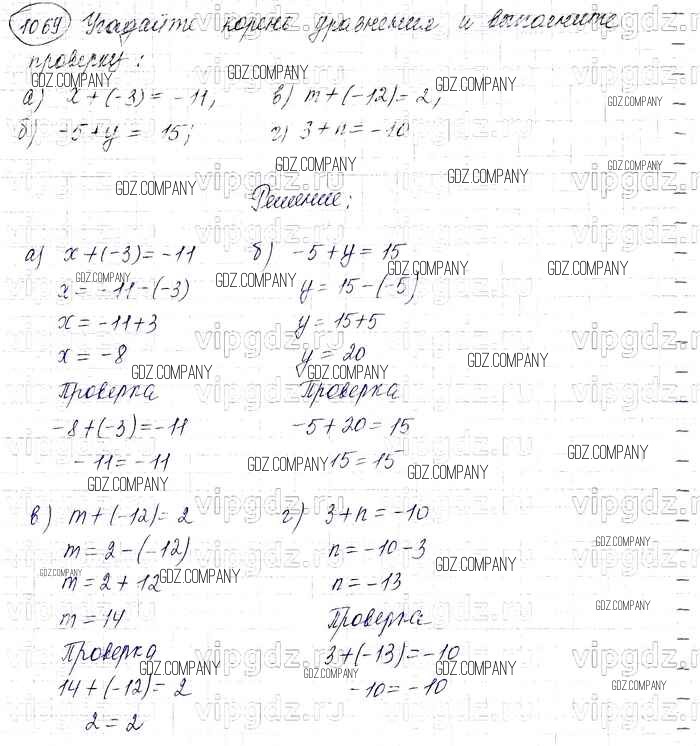 1069 Угадайте корень уравнения и выполните
проверку:
а) x + (-3) = -11; в) m + (-12) = 2;
б) -5 + y = 15; г) 3 + n = -10
Решение:
а) x + (-3) = -11
x = -11 - (-3)
x = -11 + 3
x = -8
Проверка
-8 + (-3) = -11
-11 = -11
б) -5 + y = 15
y = 15 - (-5)
y = 15 + 5
y = 20
Проверка
-5 + 20 = 15
15 = 15
в) m + (-12) = 2
m = 2 - (-12)
m = 2 + 12
m = 14
Проверка
14 + (-12) = 2
2 = 2
г) 3 + n = -10
n = -10 - 3
n = -13
Проверка
3 + (-13) = -10
-10 = -10
GDZ.COMPANY
vipgdz.ru